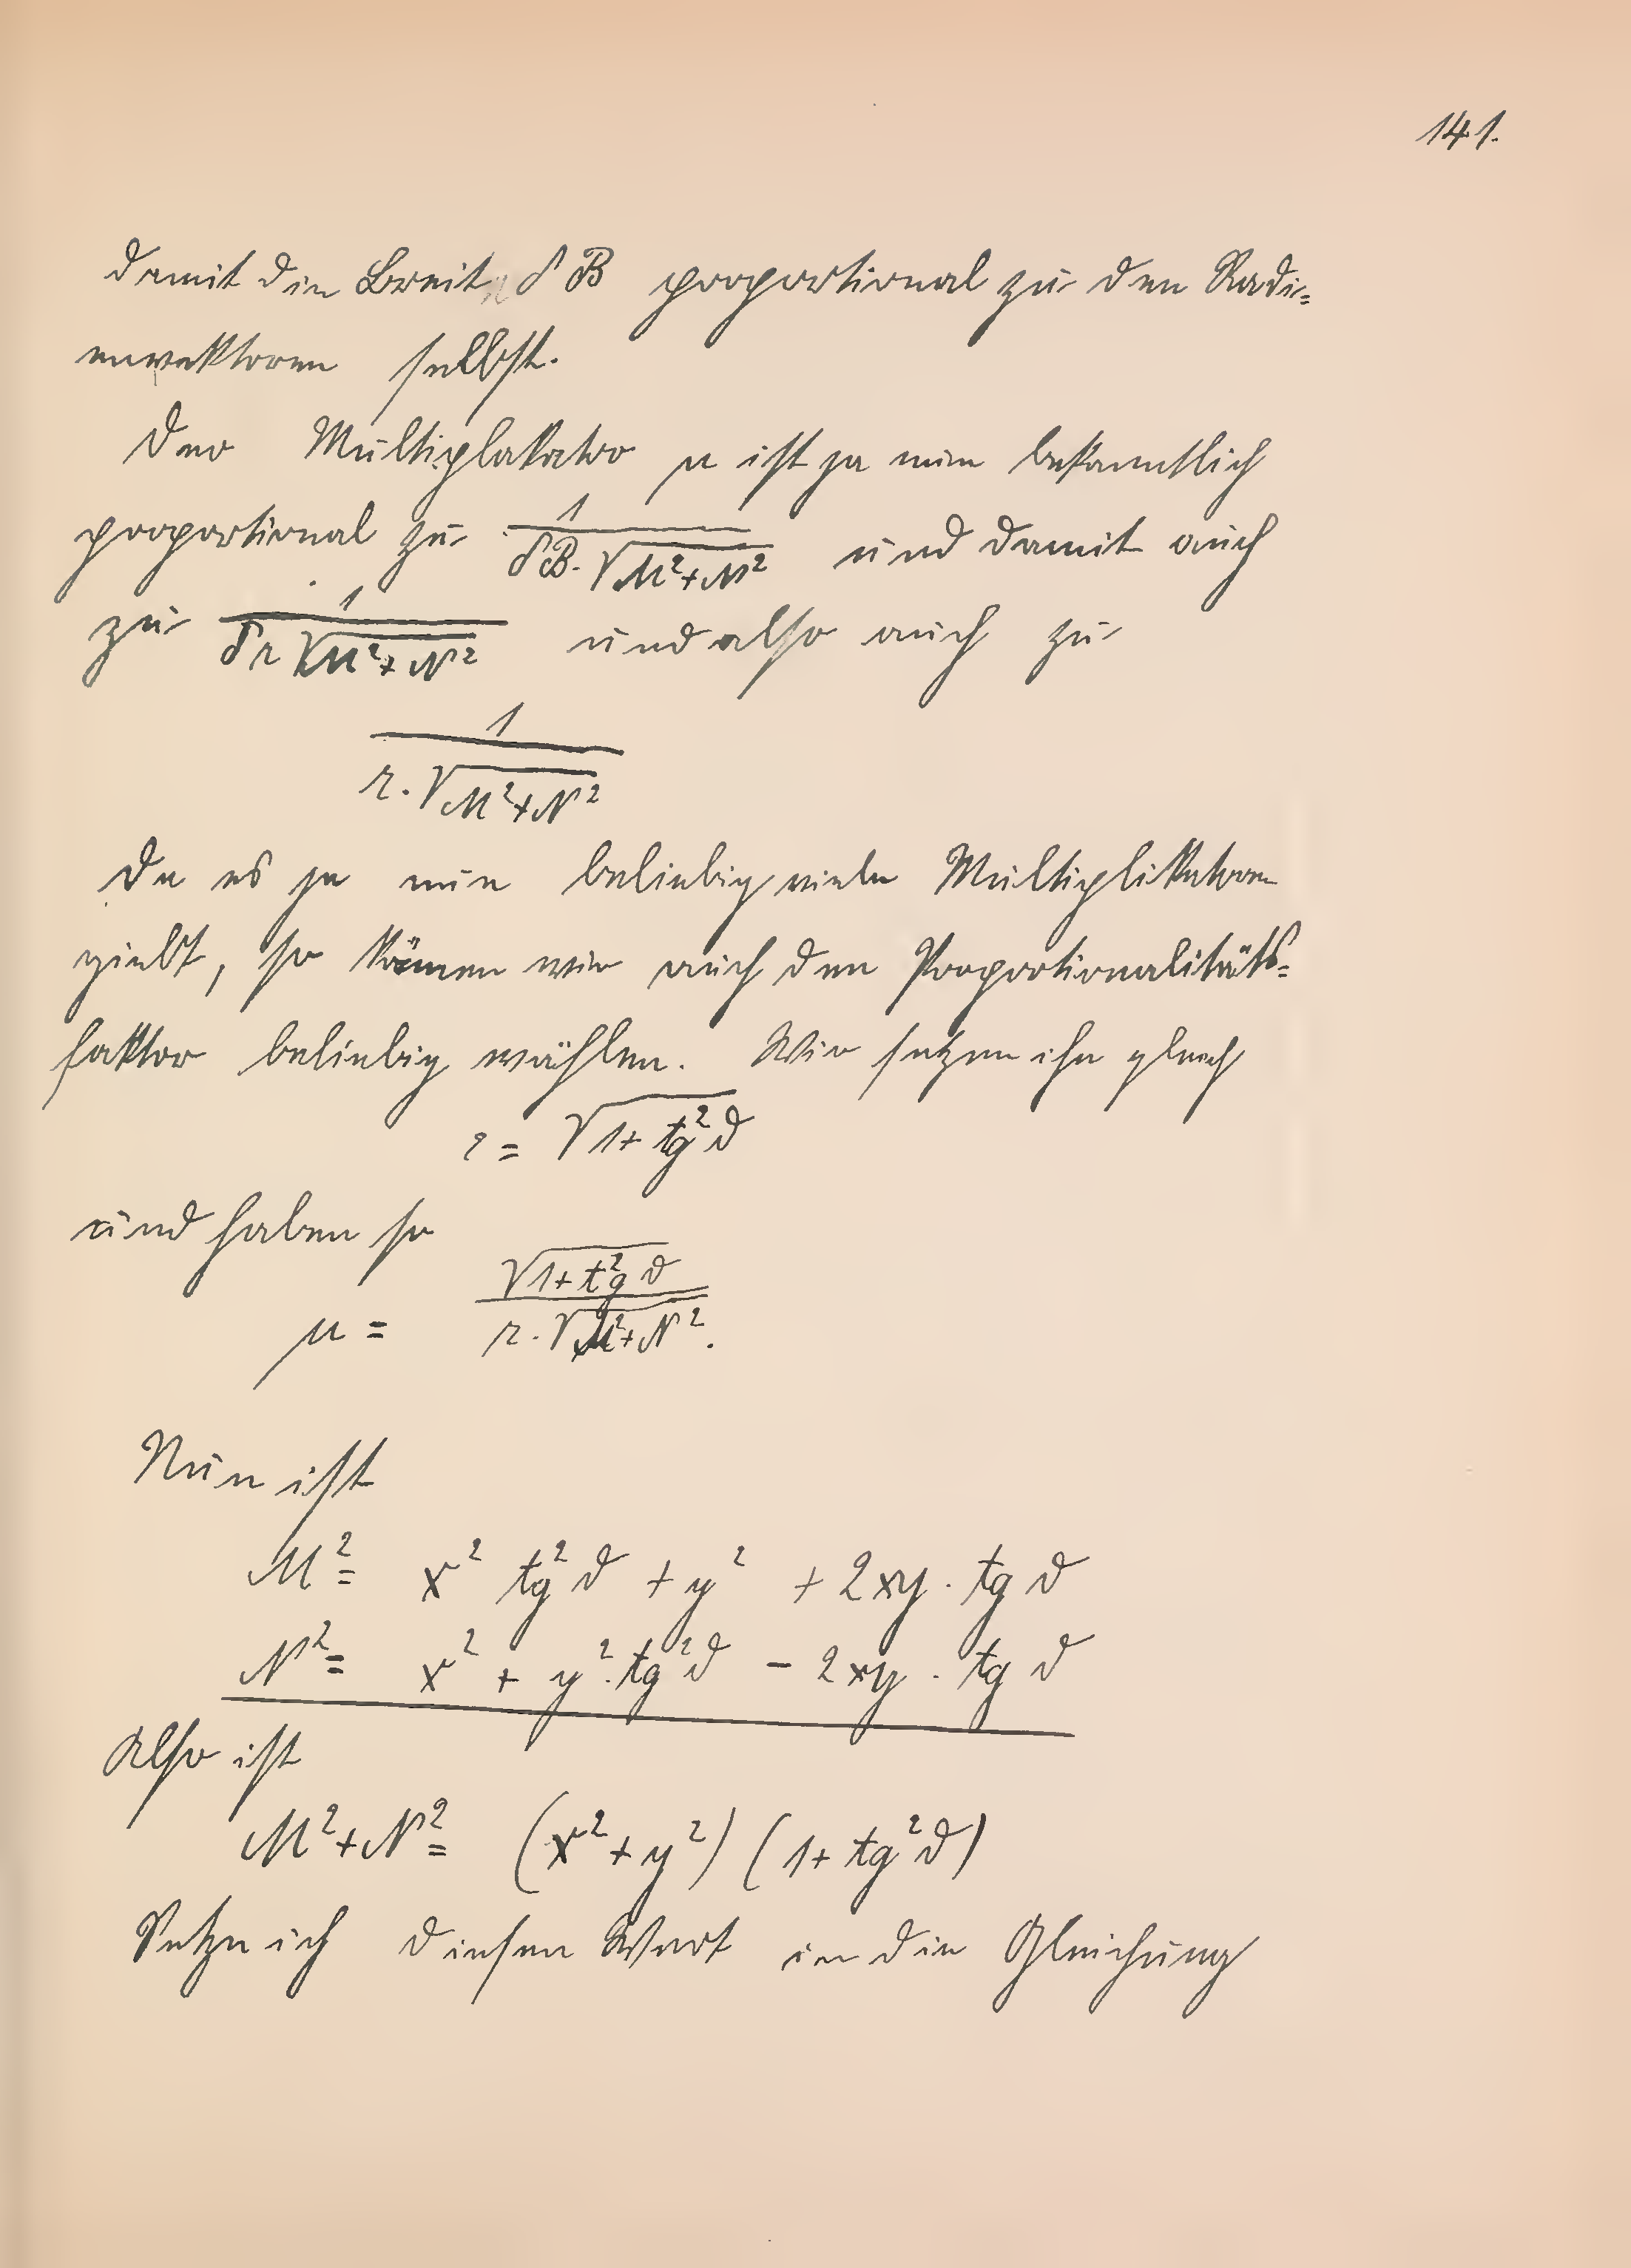 141.
damit die Breite δB proportional zu den Radi=
envektoren selbst.
Der Multiplakator μ ist ja nun bekanntlich
proportional zu 1/(δB·√(M²+N²)) und damit auch
zu 1/(δr √(M²+N²)) und also auch zu
1/(r·√(M²+N²))
Da es ja nun beliebig viele Multiplikatoren
giebt, so können wir auch den Proportionalitäts=
faktor beliebig wählen. Wir setzen ihn gleich
= √(1+tg²ϑ)
und haben so
μ = √(1+tg²ϑ)/(r·√(M²+N²)).
Nun ist
M² = x² tg²ϑ + y² + 2xy · tg ϑ
N² = x² + y²·tg²ϑ − 2xy · tg ϑ
Also ist
M²+N² = (x²+y²) (1+tg²ϑ)
Setze ich diesen Wert in die Gleichung